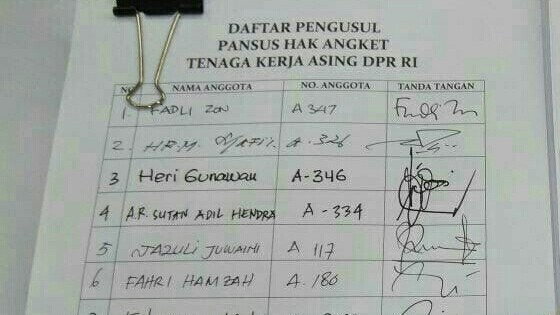 DAFTAR PENGUSUL
PANSUS HAK ANGKET
TENAGA KERJA ASING DPR RI
NO NAMA ANGGOTA NO. ANGGOTA TANDA TANGAN
1. FADLI ZON A 347
2. HR.M. A. 326
3 Heri Gunawan A-346
4 A.R. SUTAN ADIL HENDRA A - 334
5 JAZULI JUWAINI A 117
6 FAHRI HAMZAH A. 180